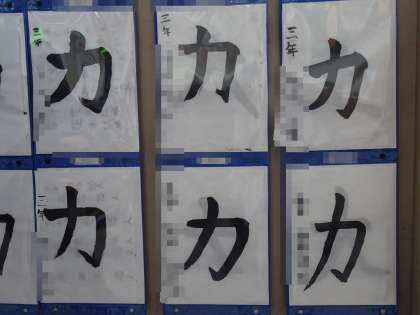 三年
力
三年
力
三年
力
三年
力
力
力